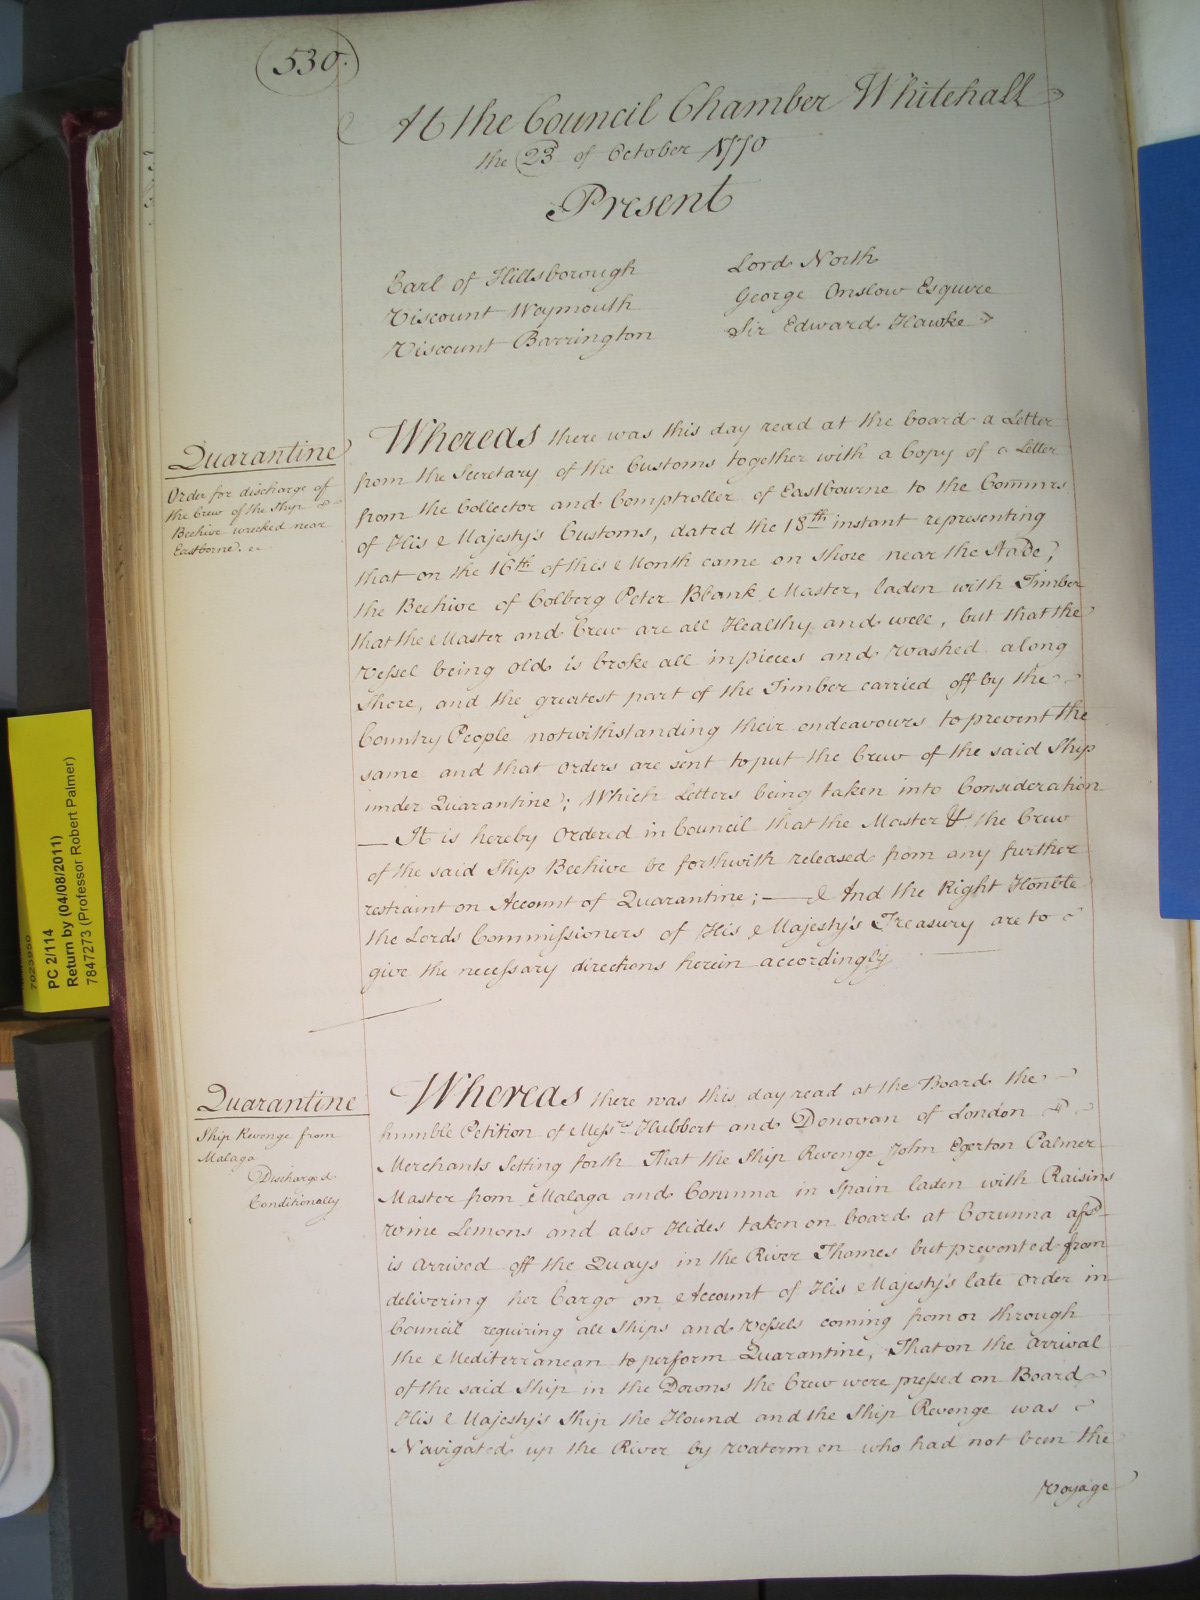 530.
At the Council Chamber Whitehall
the 23 of October 1770
Present
Earl of Hillsborough
Viscount Weymouth
Viscount Barrington
Lord North
George Onslow Esquire
Sir Edward Hawke
Quarantine
Order for discharge of
the Crew of the Ship
Beehive wrecked near
Eastborne.
Whereas there was this day read at the board a Letter
from the Secretary of the Customs together with a Copy of a Letter
from the Collector and Comptroller of Eastbourne to the Commrs
of His Majesty's Customs, dated the 18th instant representing
that on the 16th of this Month came on shore near the Stade,
the Beehive of Colberg Peter Blank Master, laden with Timber
that the Master and Crew are all Healthy and well, but that the
Vessel being old is broke all in pieces and washed along
Shore, and the greatest part of the Timber carried off by the
Country People notwithstanding their endeavours to prevent the
same and that orders are sent to put the Crew of the said Ship
under Quarantine; Which Letters being taken into Consideration
— It is hereby Ordered in Council that the Master & the Crew
of the said Ship Beehive be forthwith released from any further
restraint on Account of Quarantine; — And the Right Honble
the Lords Commissioners of His Majesty's Treasury are to
give the necessary directions herein accordingly
Quarantine
Ship Revenge from
Malaga
Discharged
Conditionally
Whereas there was this day read at the Board the
humble Petition of Messrs Hubbert and Donovan of London
Merchants Setting forth That the Ship Revenge John Egerton Palmer
Master from Malaga and Corunna in Spain laden with Raisins
wine Lemons and also Hides taken on board at Corunna afsd
is arrived off the Quays in the River Thames but prevented from
delivering her Cargo on Account of His Majesty's late Order in
Council requiring all Ships and Vessels coming from or through
the Mediterranean to perform Quarantine, That on the arrival
of the said Ship in the Downs the Crew were pressed on Board
His Majesty's Ship the Hound and the Ship Revenge was
Navigated up the River by watermen who had not been the
Voyage
PC 2/114
Return by (04/08/2011)
7847273 (Professor Robert Palmer)